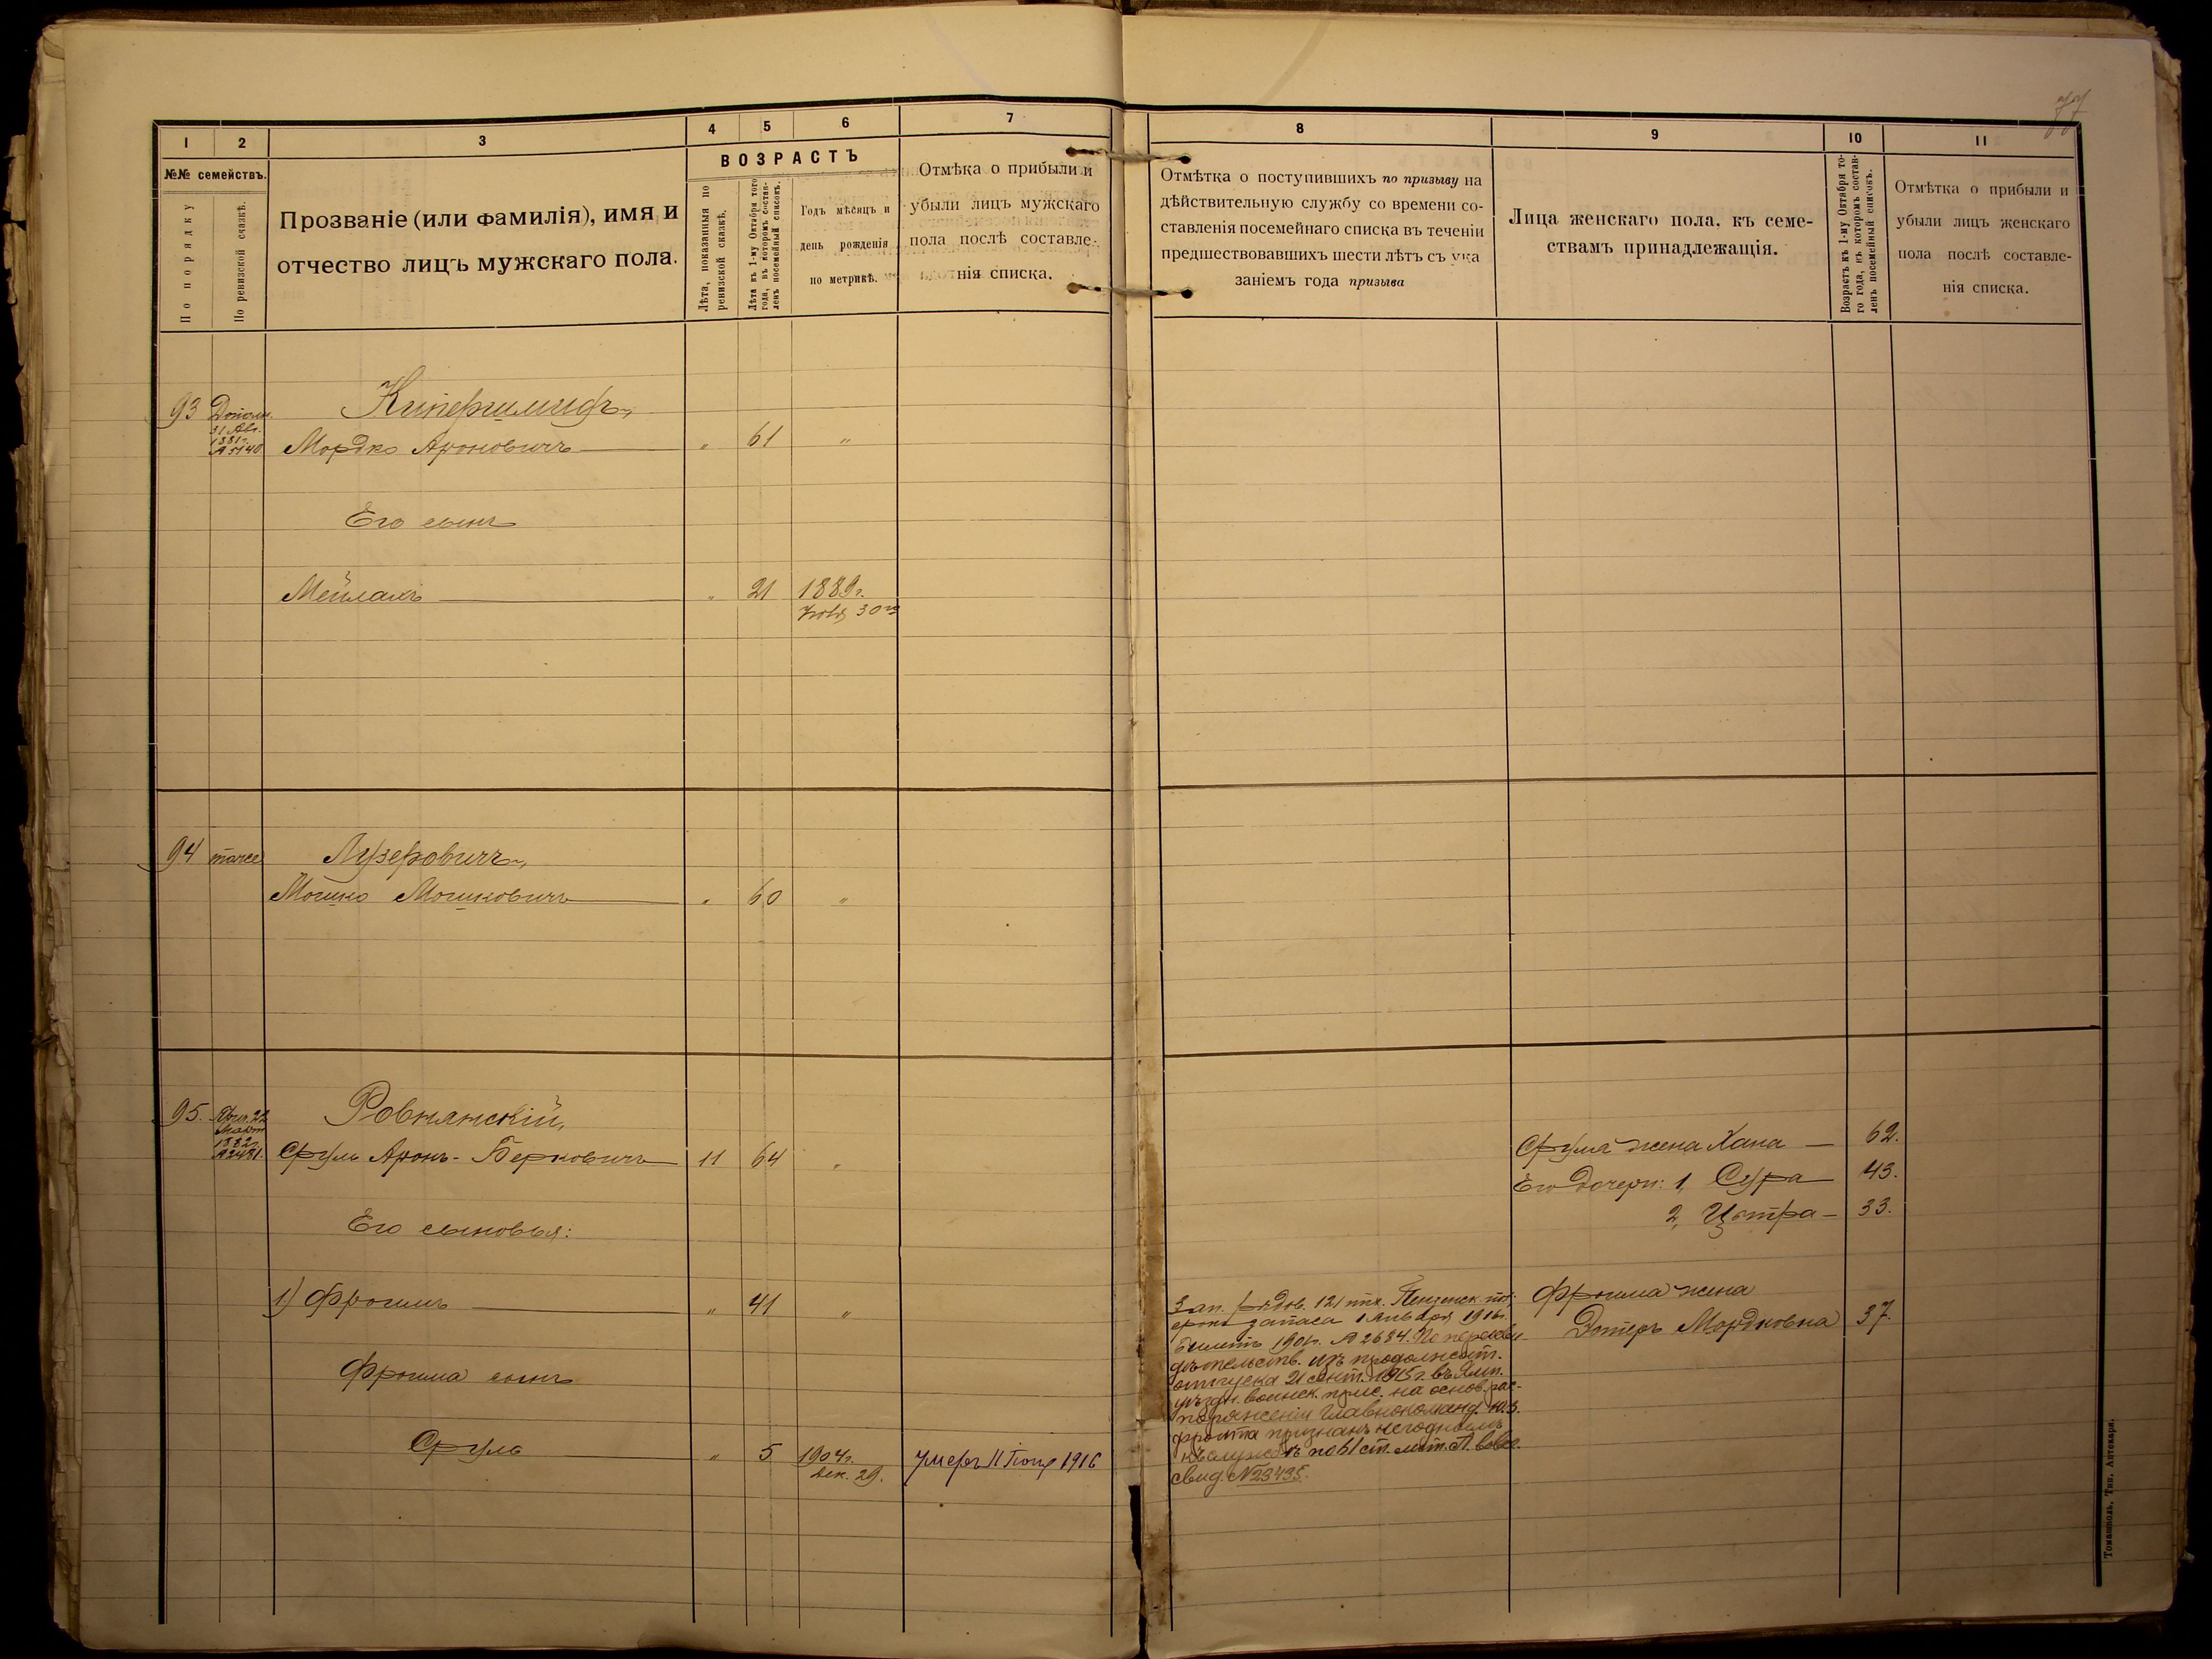 77
1 2 3 4 5 6 7
№№ семействъ.
По порядку
По ревизской сказкѣ.
Прозваніе (или фамилія), имя и
отчество лицъ мужскаго пола.
ВОЗРАСТЪ
Лѣта, показанныя по
ревизской сказкѣ.
Лѣта къ 1-му Октября того
года, въ которомъ состав-
ленъ посемейный списокъ.
Годъ мѣсяцъ и
день рожденія
по метрикѣ.
Отмѣка о прибыли и
убыли лицъ мужскаго
пола послѣ составле-
нія списка.
93 Дополн. Кипершмидъ,
31 Авг.
1881г.
№ 5140 Мордко Ароновичъ " 61 "
Его сынъ
Мейлахъ " 21 1889г.
30го
94 тоже Лузеровичъ,
Мошко Мошковичъ " 60 "
95. 22 Ровнянскій,
Март
1882г.
Сруль Аронъ-Берковичъ 11 64 "
Его сыновья:
1) Фроимъ " 41 "
Фроима сынъ
Сруль " 5 1904г. умеръ 11 1916
Дек. 29.
8 9 10 11
Отмѣтка о поступившихъ по призыву на
дѣйствительную службу со времени со-
ставленія посемейнаго списка въ теченіи
предшествовавшихъ шести лѣтъ съ ука
заніемъ года призыва
Лица женскаго пола, къ семе-
ствамъ принадлежащія.
Возрастъ къ 1-му Октября то-
го года, въ которомъ состав-
ленъ посемейный списокъ.
Отмѣтка о прибыли и
убыли лицъ женскаго
пола послѣ составле-
нія списка.
Сруля жена Хана 62.
Его дочери: 1, Сура 43.
2, Цытра 33.
Зап. рядов. 121 пѣх. Пензенск. пол.;
срокъ запаса 1 Января 1916г.
билетъ 1901г. № 2684. По переосви-
дѣтельств. изъ продолжит.
отпуска 21 сент. 1915 г. въ Ямп.
уѣздн. воинск. прис. на основ. рас-
поряженія Главнокоманд. Ю.З.
фронта признанъ негоднымъ
къ службѣ по 61 ст. лит. А.
свид. №23435.
Фроима жена
Эстеръ Мордковна 37.
Томашполь, Тип. Аптекаря.